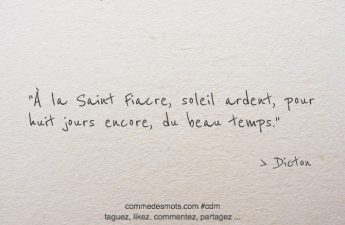 "À la Saint Fiacre, soleil ardent, pour
huit jours encore, du beau temps."
> Dicton
commedesmots.com #cdm
taguez, likez, commentez, partagez ...